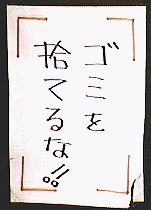 ゴミを
捨てるな!!